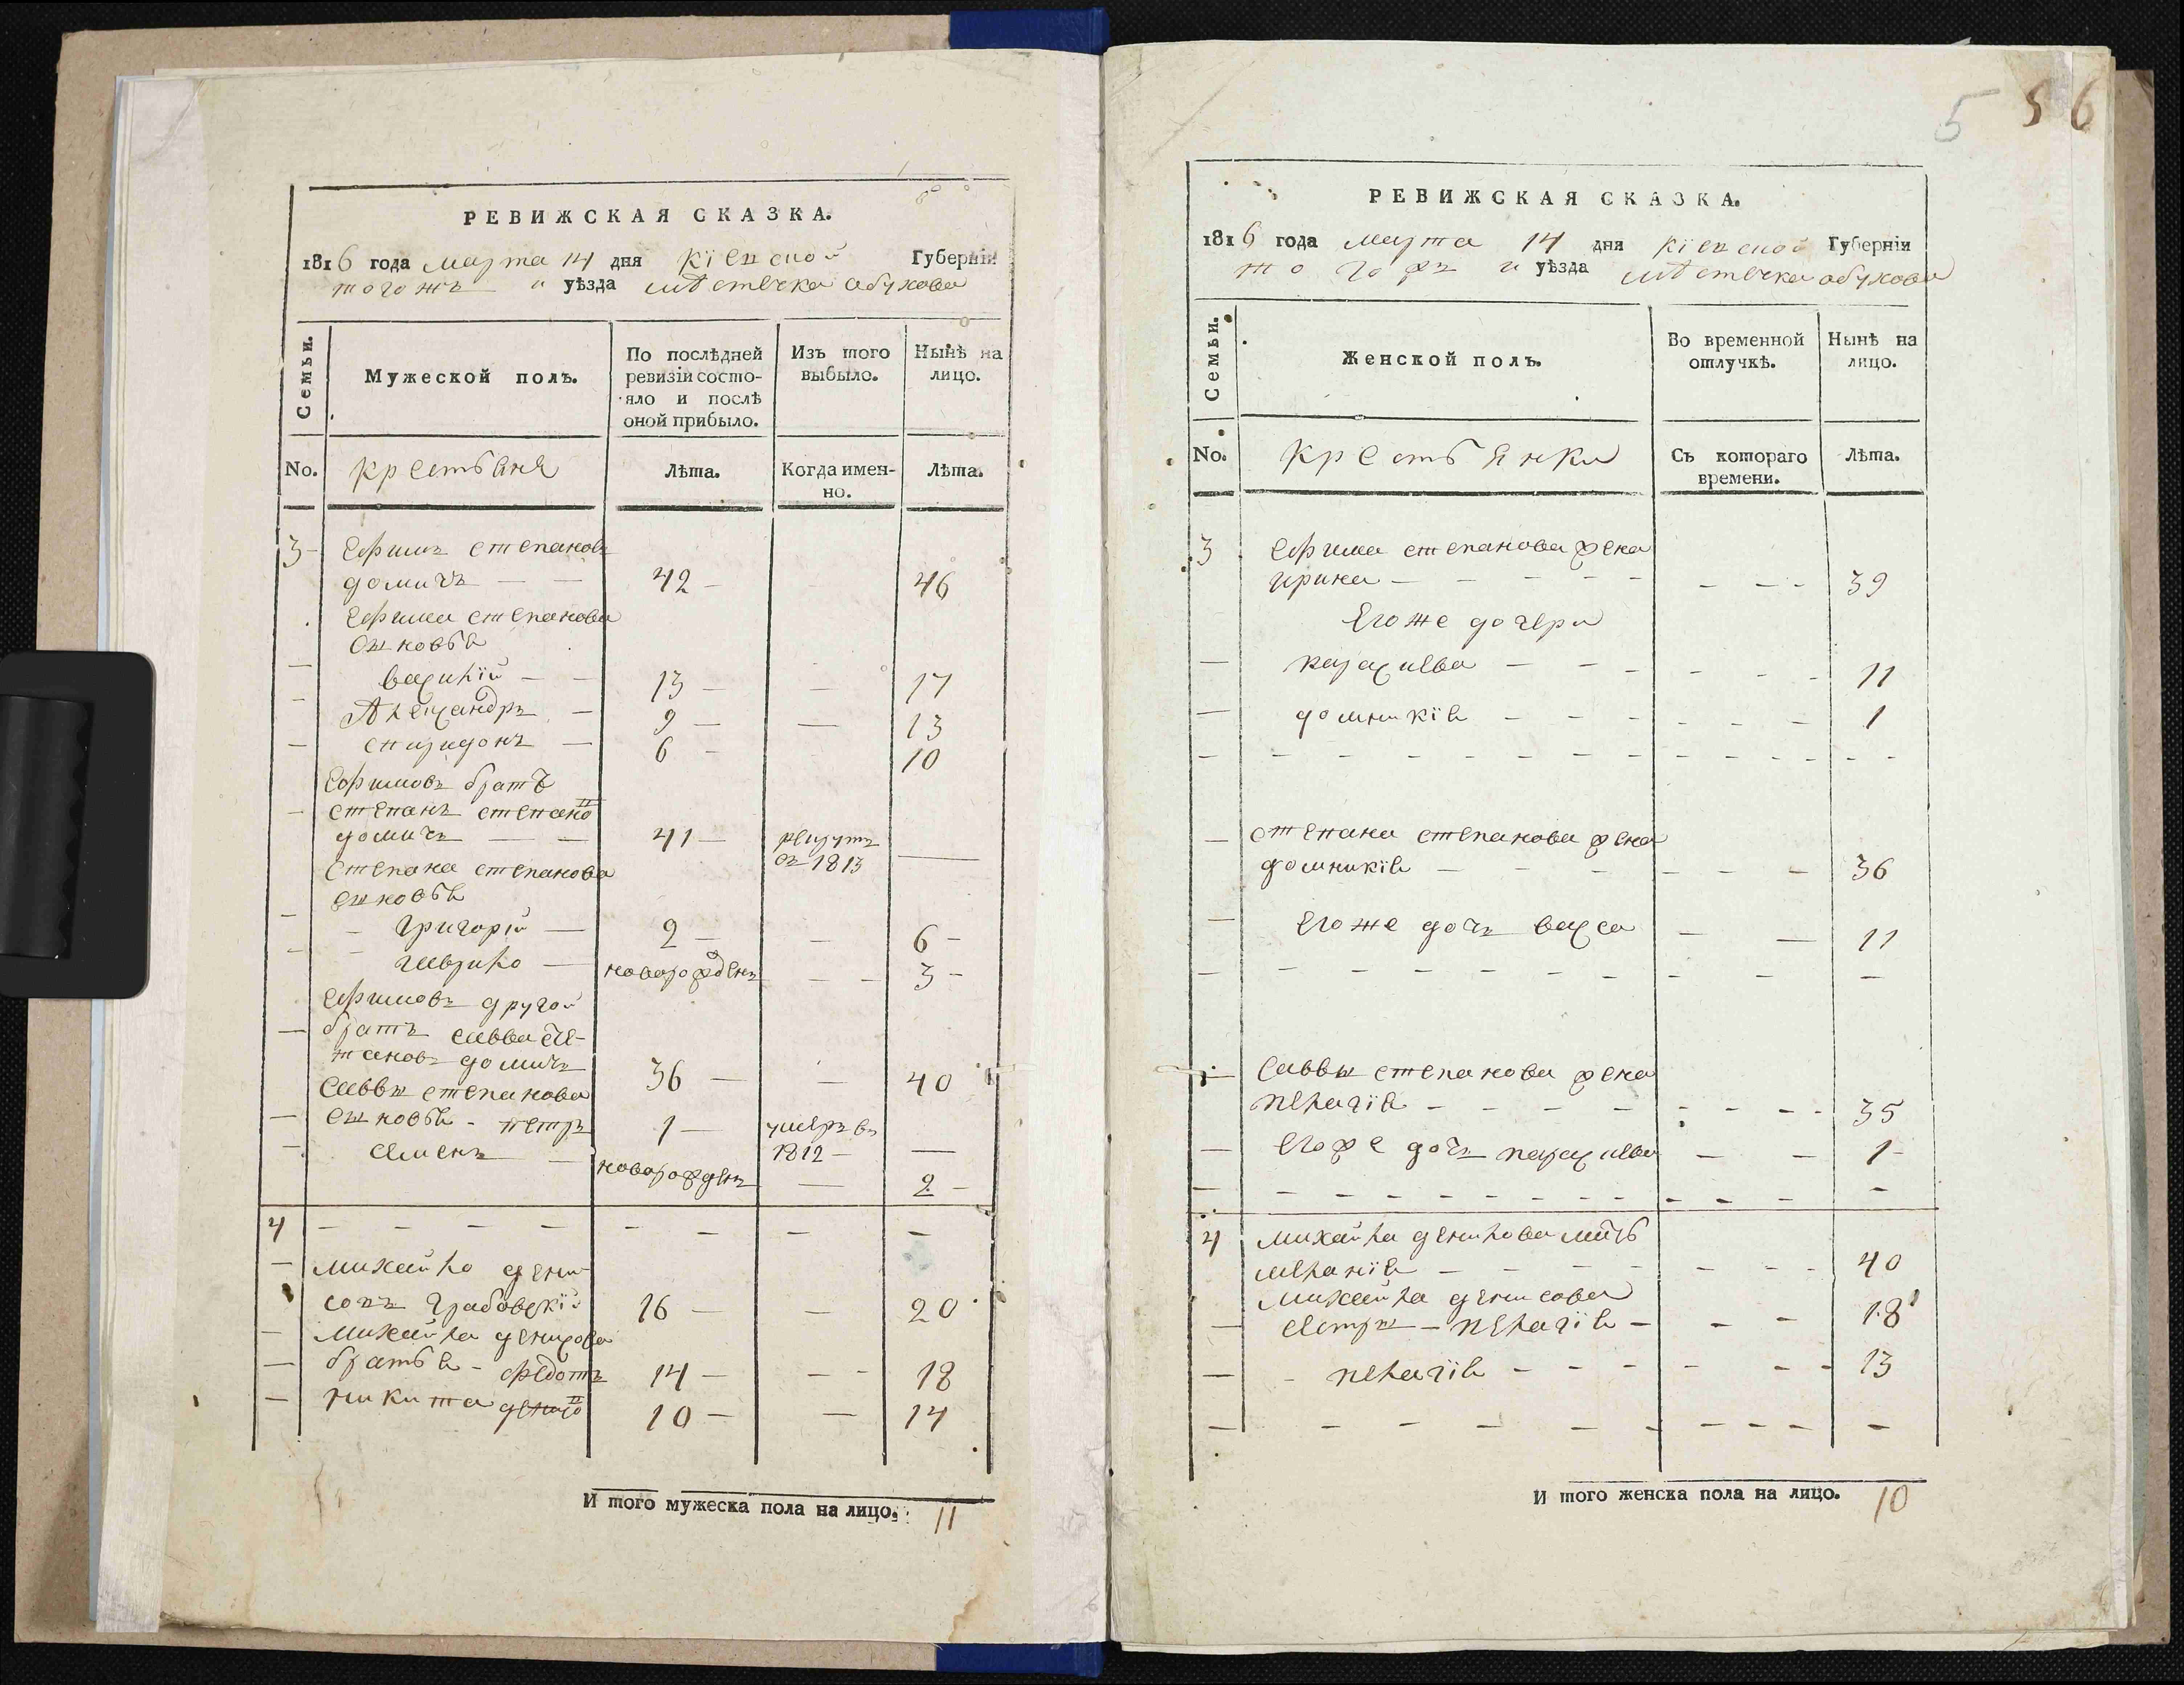 РЕВИЖСКАЯ СКАЗКА.
1816 года марта 14 дня кіевской Губерніи
тогожъ и уѣзда мѣстечка обухова
Семьи.
Мужеской полъ.
По послѣдней ревизіи состо-
яло и послѣ
оной прибыло.
Изъ того
выбыло.
Нынѣ на
лицо.
No.
крестьяня
Лѣта.
Когда имен-
но.
Лѣта.
3 Ефимъ степановъ
домичъ — — 42 — 46
Ефима степанова
сыновья
василій — — 13 — — 17
Александръ — 9 — — 13
спиридонъ — 6 — 10
Ефимовъ братъ
степанъ степано в
домичъ — — 41 — рекрутъ
съ 1813 —
Степана степанова
сыновья
— Григорій — 2 — — 6 —
— гаврило — новорожденъ — — 3 —
Ефимовъ другой
— братъ савва сте-
пановъ домичъ 36 — — 40
Саввы степанова
— сыновья - петръ 1 — умеръ въ
1812 — —
— семенъ — новорожденъ — 2 —
4 — — — — — — —
— михайло дени-
совъ Грабовскій 16 — — 20
— михайла денисова
— братья - федотъ 14 — — - 18
— никита денисо в 10 — — 14
И того мужеска пола на лицо. 11
5 5 6
РЕВИЖСКАЯ СКАЗКА.
1816 года марта 14 дня кіевской Губерніи
то гожъ и уѣзда мѣстечка обухова
Семьи.
Женской полъ.
Во временной
отлучкѣ.
Нынѣ на
лицо.
No.
крестьянки
Съ котораго
времени.
Лѣта.
3 Ефима степанова жена
ирина — — — — — — — - 39
Егоже дочери
— параскева — — — — — — 11
— домникія — — — — — — — 1
— — — — — — — — — — — — - - -
— степана степанова жена
домникія — — — — — — 36
— Егоже дочь васса — — 11
— — — — — — — — — — — —
— Саввы степанова жена
пелагія — — — — — — — - 35
— егоже дочь параскева — — 1 -
— — — — — — — — — — — — — —
4 михайла денисова мать
меланія — — — — — — - 40
михайла денисова
— сестры — пелагія — — — 18
— - пелагія — — — — — - 13
— — — — — — — — — — —
И того женска пола на лицо. 10